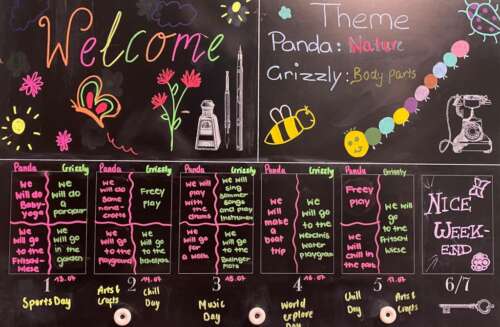 Welcome
Theme
Panda: Nature
Grizzly: Body parts
Panda Grizzly
we will do Baby-yoga
we will do a parcour
we will go to the Fritschi-wiese
we will go in the garden
Panda Grizzly
we will do some hand-crafts
Freey play
we will go to the playground
we will go to the
Panda Grizzly
we will play with the drums
we will sing summer songs and play instrumen
we will go a walk
we will go to the Bullinger
Panda Grizzly
we will make a boat trip
we will go to the water playground
Panda Grizzly
Freey play
we will chill in the park
we will go to the Fritschi wiese
NICE
WEEK-
END
1 13.07
2 14.07
3 15.07
4 16.07
5 17.07
6/7
Sports Day
Arts & Crafts
Chill Day
Music Day
World explore Day
Chill Day
Arts & Crafts